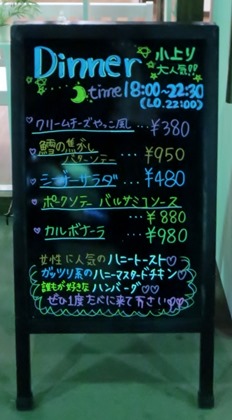 Dinner
小上り
大人気!!
time 18:00~22:30
(LO.22:00)
クリームチーズやっこ風 … ¥380
鱈の焦がし
バターソテー … ¥950
シーザーサラダ … ¥480
ポークソテー バルサミコソース
… ¥880
カルボナーラ … ¥980
女性に人気の ハニートースト♡
ガッツリ系の ハニーマスタードチキン
誰もが好きな ハンバーグ♡♡
ぜひ1度たべに来て下さい♡♡